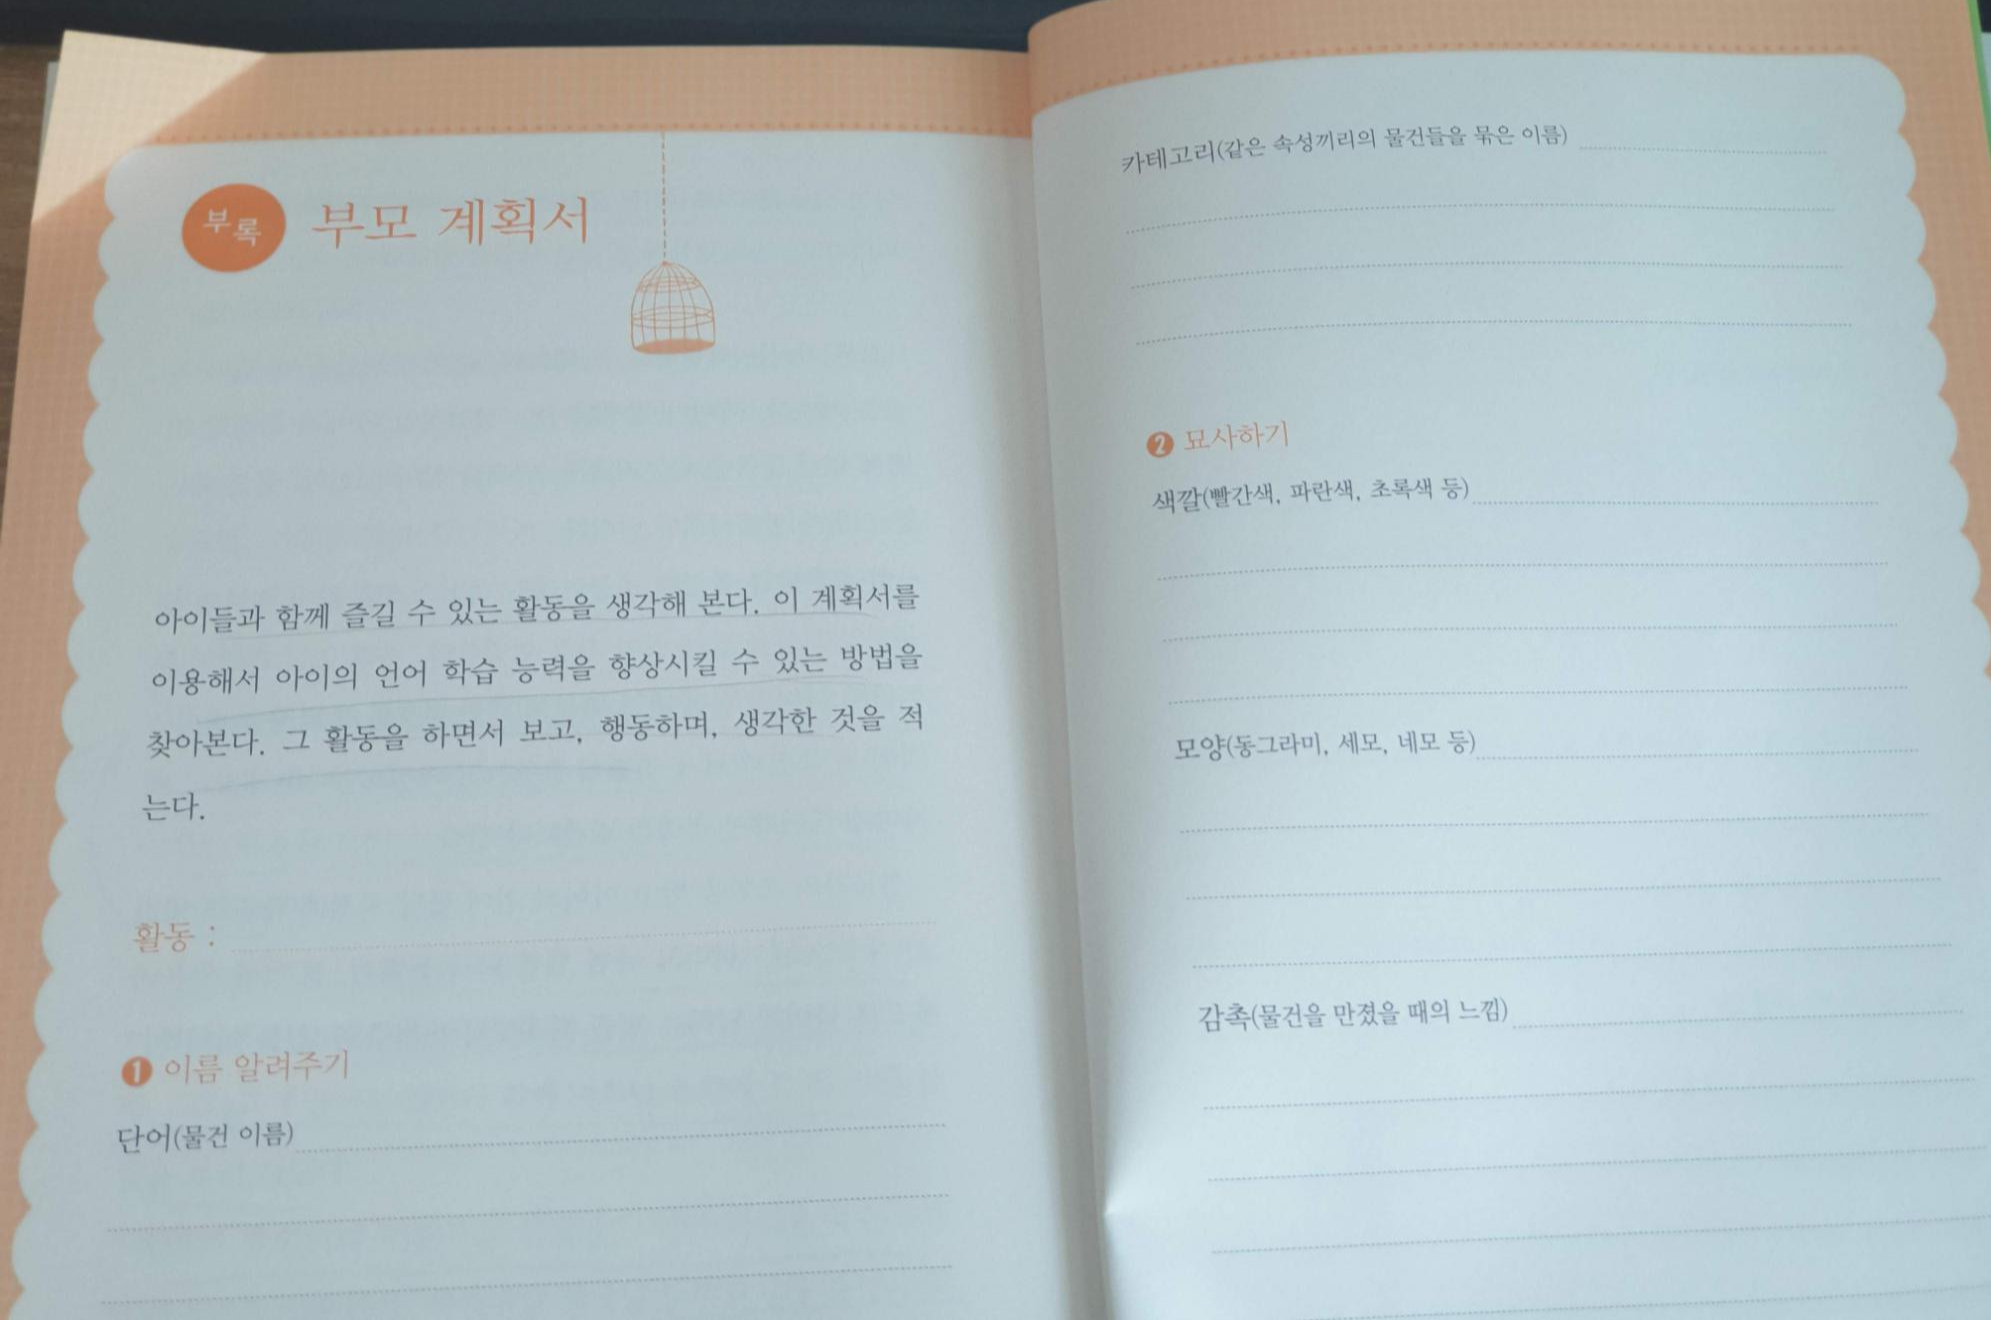 부록 부모 계획서
아이들과 함께 즐길 수 있는 활동을 생각해 본다. 이 계획서를
이용해서 아이의 언어 학습 능력을 향상시킬 수 있는 방법을
찾아본다. 그 활동을 하면서 보고, 행동하며, 생각한 것을 적
는다.
활동 :
1 이름 알려주기
단어(물건 이름)
카테고리(같은 속성끼리의 물건들을 묶은 이름)
2 묘사하기
색깔(빨간색, 파란색, 초록색 등)
모양(동그라미, 세모, 네모 등)
감촉(물건을 만졌을 때의 느낌)